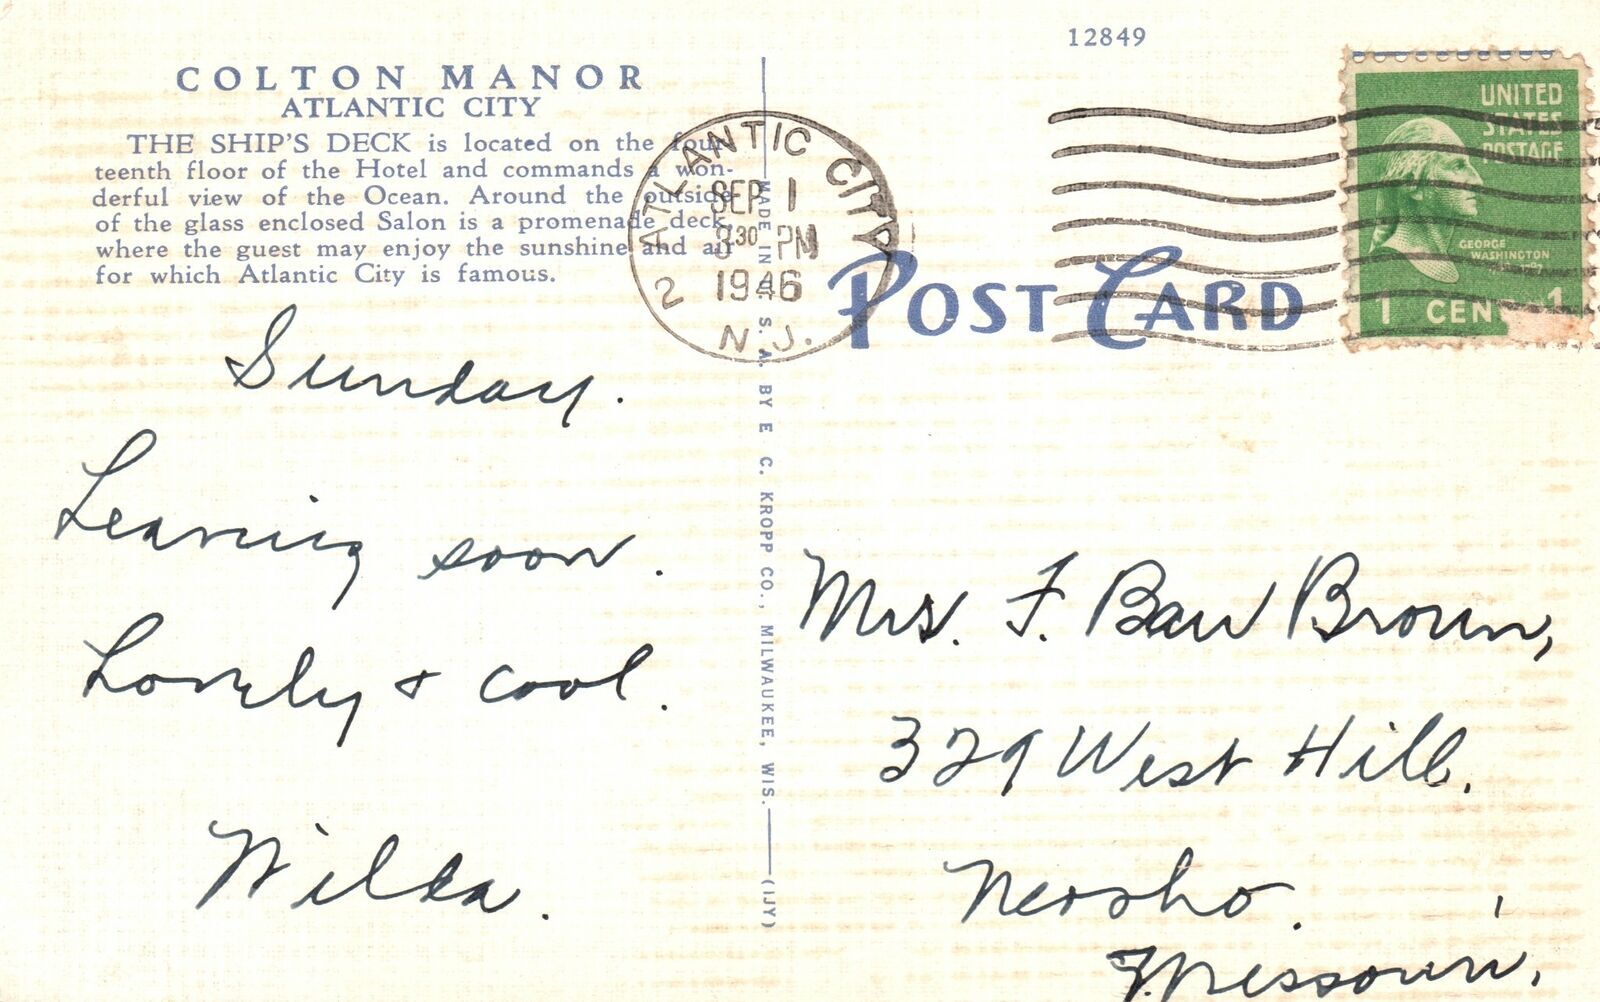 12849
COLTON MANOR
ATLANTIC CITY
THE SHIP'S DECK is located on the four-
teenth floor of the Hotel and commands a won-
derful view of the Ocean. Around the outside
of the glass enclosed Salon is a promenade deck,
where the guest may enjoy the sunshine and air
for which Atlantic City is famous.
ATLANTIC CITY
SEP 1
3 30 PM
1946
2 N.J.
UNITED
STATES
POSTAGE
GEORGE
WASHINGTON
1 CEN 1
POST CARD
MADE IN U. S. A. BY E. C. KROPP CO., MILWAUKEE, WIS. (IJY)
Sunday.
Leaving soon.
Lovely + cool.
Wilda.
Mrs. F. Baw Brown,
329 West Hill,
Neosho.
Missouri,